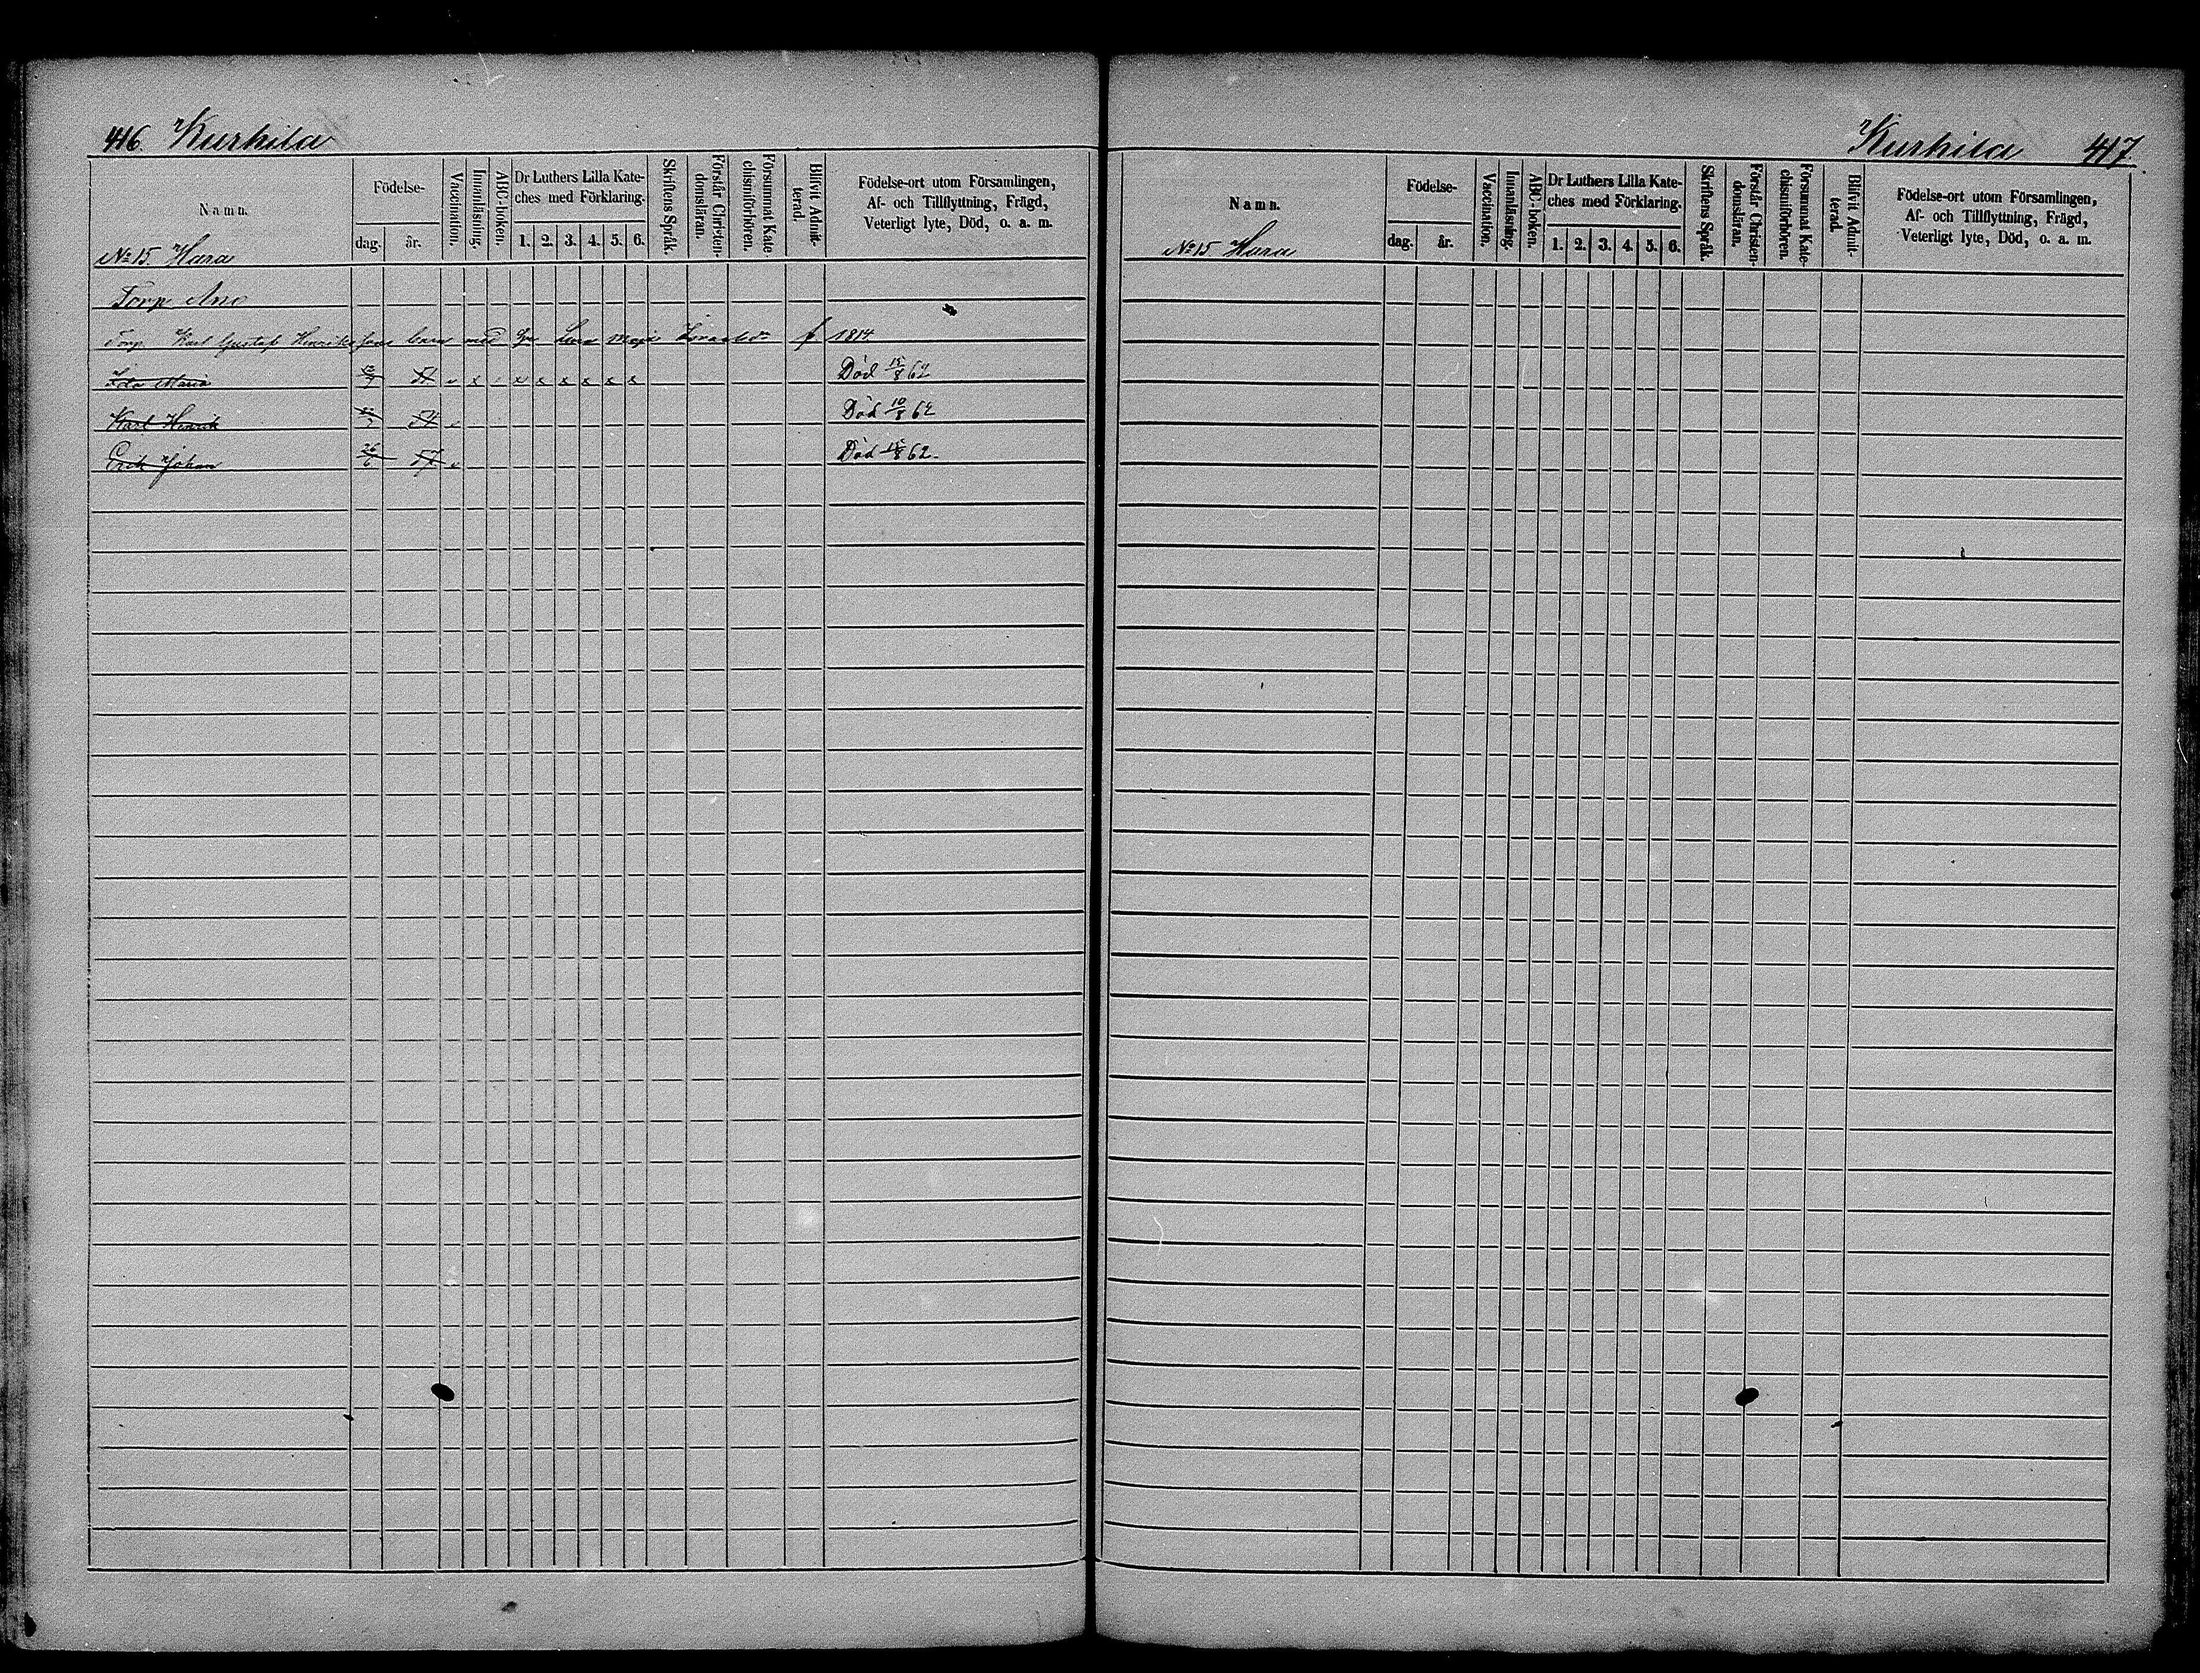 416. Kurhila
Namn.
Födelse-
dag. år.
Vaccination.
Innanläsning.
ABC-boken.
Dr Luthers Lilla Kate-
ches med Förklaring.
1. 2. 3. 4. 5. 6.
Skriftens Språk.
Förstår Christen-
domsläran.
Försummat Kate-
chismiförhören.
Blifvit Admit-
terad.
Födelse-ort utom Församlingen,
Af- och Tillflyttning, Frägd,
Veterligt lyte, Död, o. a. m.
No 15. Hara
Torp Ano
Torp. Karl Gustaf Henriksson barn med Maja f 1814
Ida Maria 51 v x x x x x x x Död 15/8 62
Karl Henrik 54 v Död 10/8 62
Erik Johan 26/6 57 v Död 62.
Kurhila 417.
Namn.
Födelse-
dag. år.
Vaccination.
Innanläsning.
ABC-boken.
Dr Luthers Lilla Kate-
ches med Förklaring.
1. 2. 3. 4. 5. 6.
Skriftens Språk.
Förstår Christen-
domsläran.
Försummat Kate-
chismiförhören.
Blifvit Admit-
terad.
Födelse-ort utom Församlingen,
Af- och Tillflyttning, Frägd,
Veterligt lyte, Död, o. a. m.
No 15 Hara